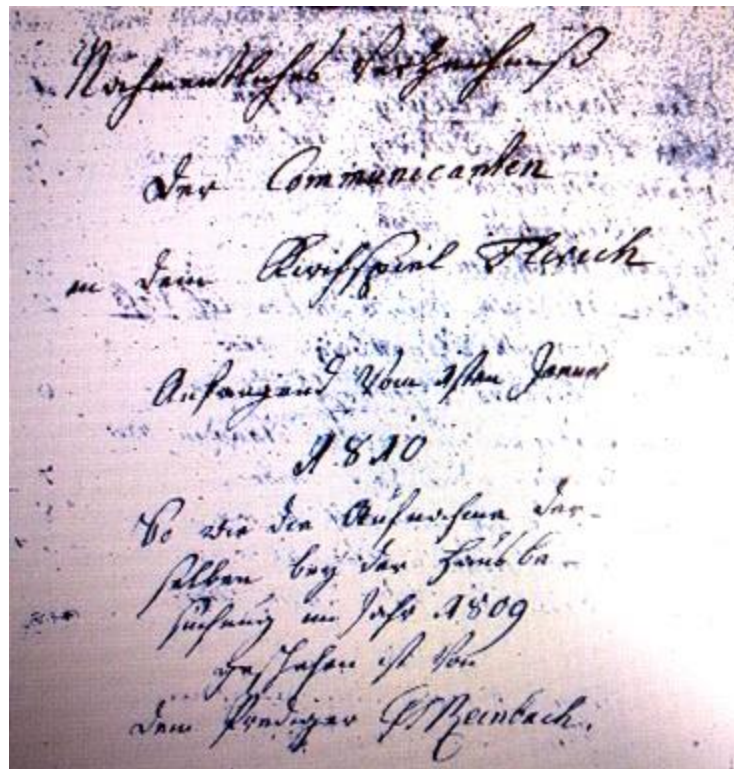 Nahmentliches Verzeichniß
der Communicanten
in dem Kirchspiel Flerich
Anfangend vom 1sten Januar
1810
So wie die Aufnahme der-
selben bey der Hausbe-
suchung im Jahr 1809
geschehen ist von
dem Prediger Reinbach.